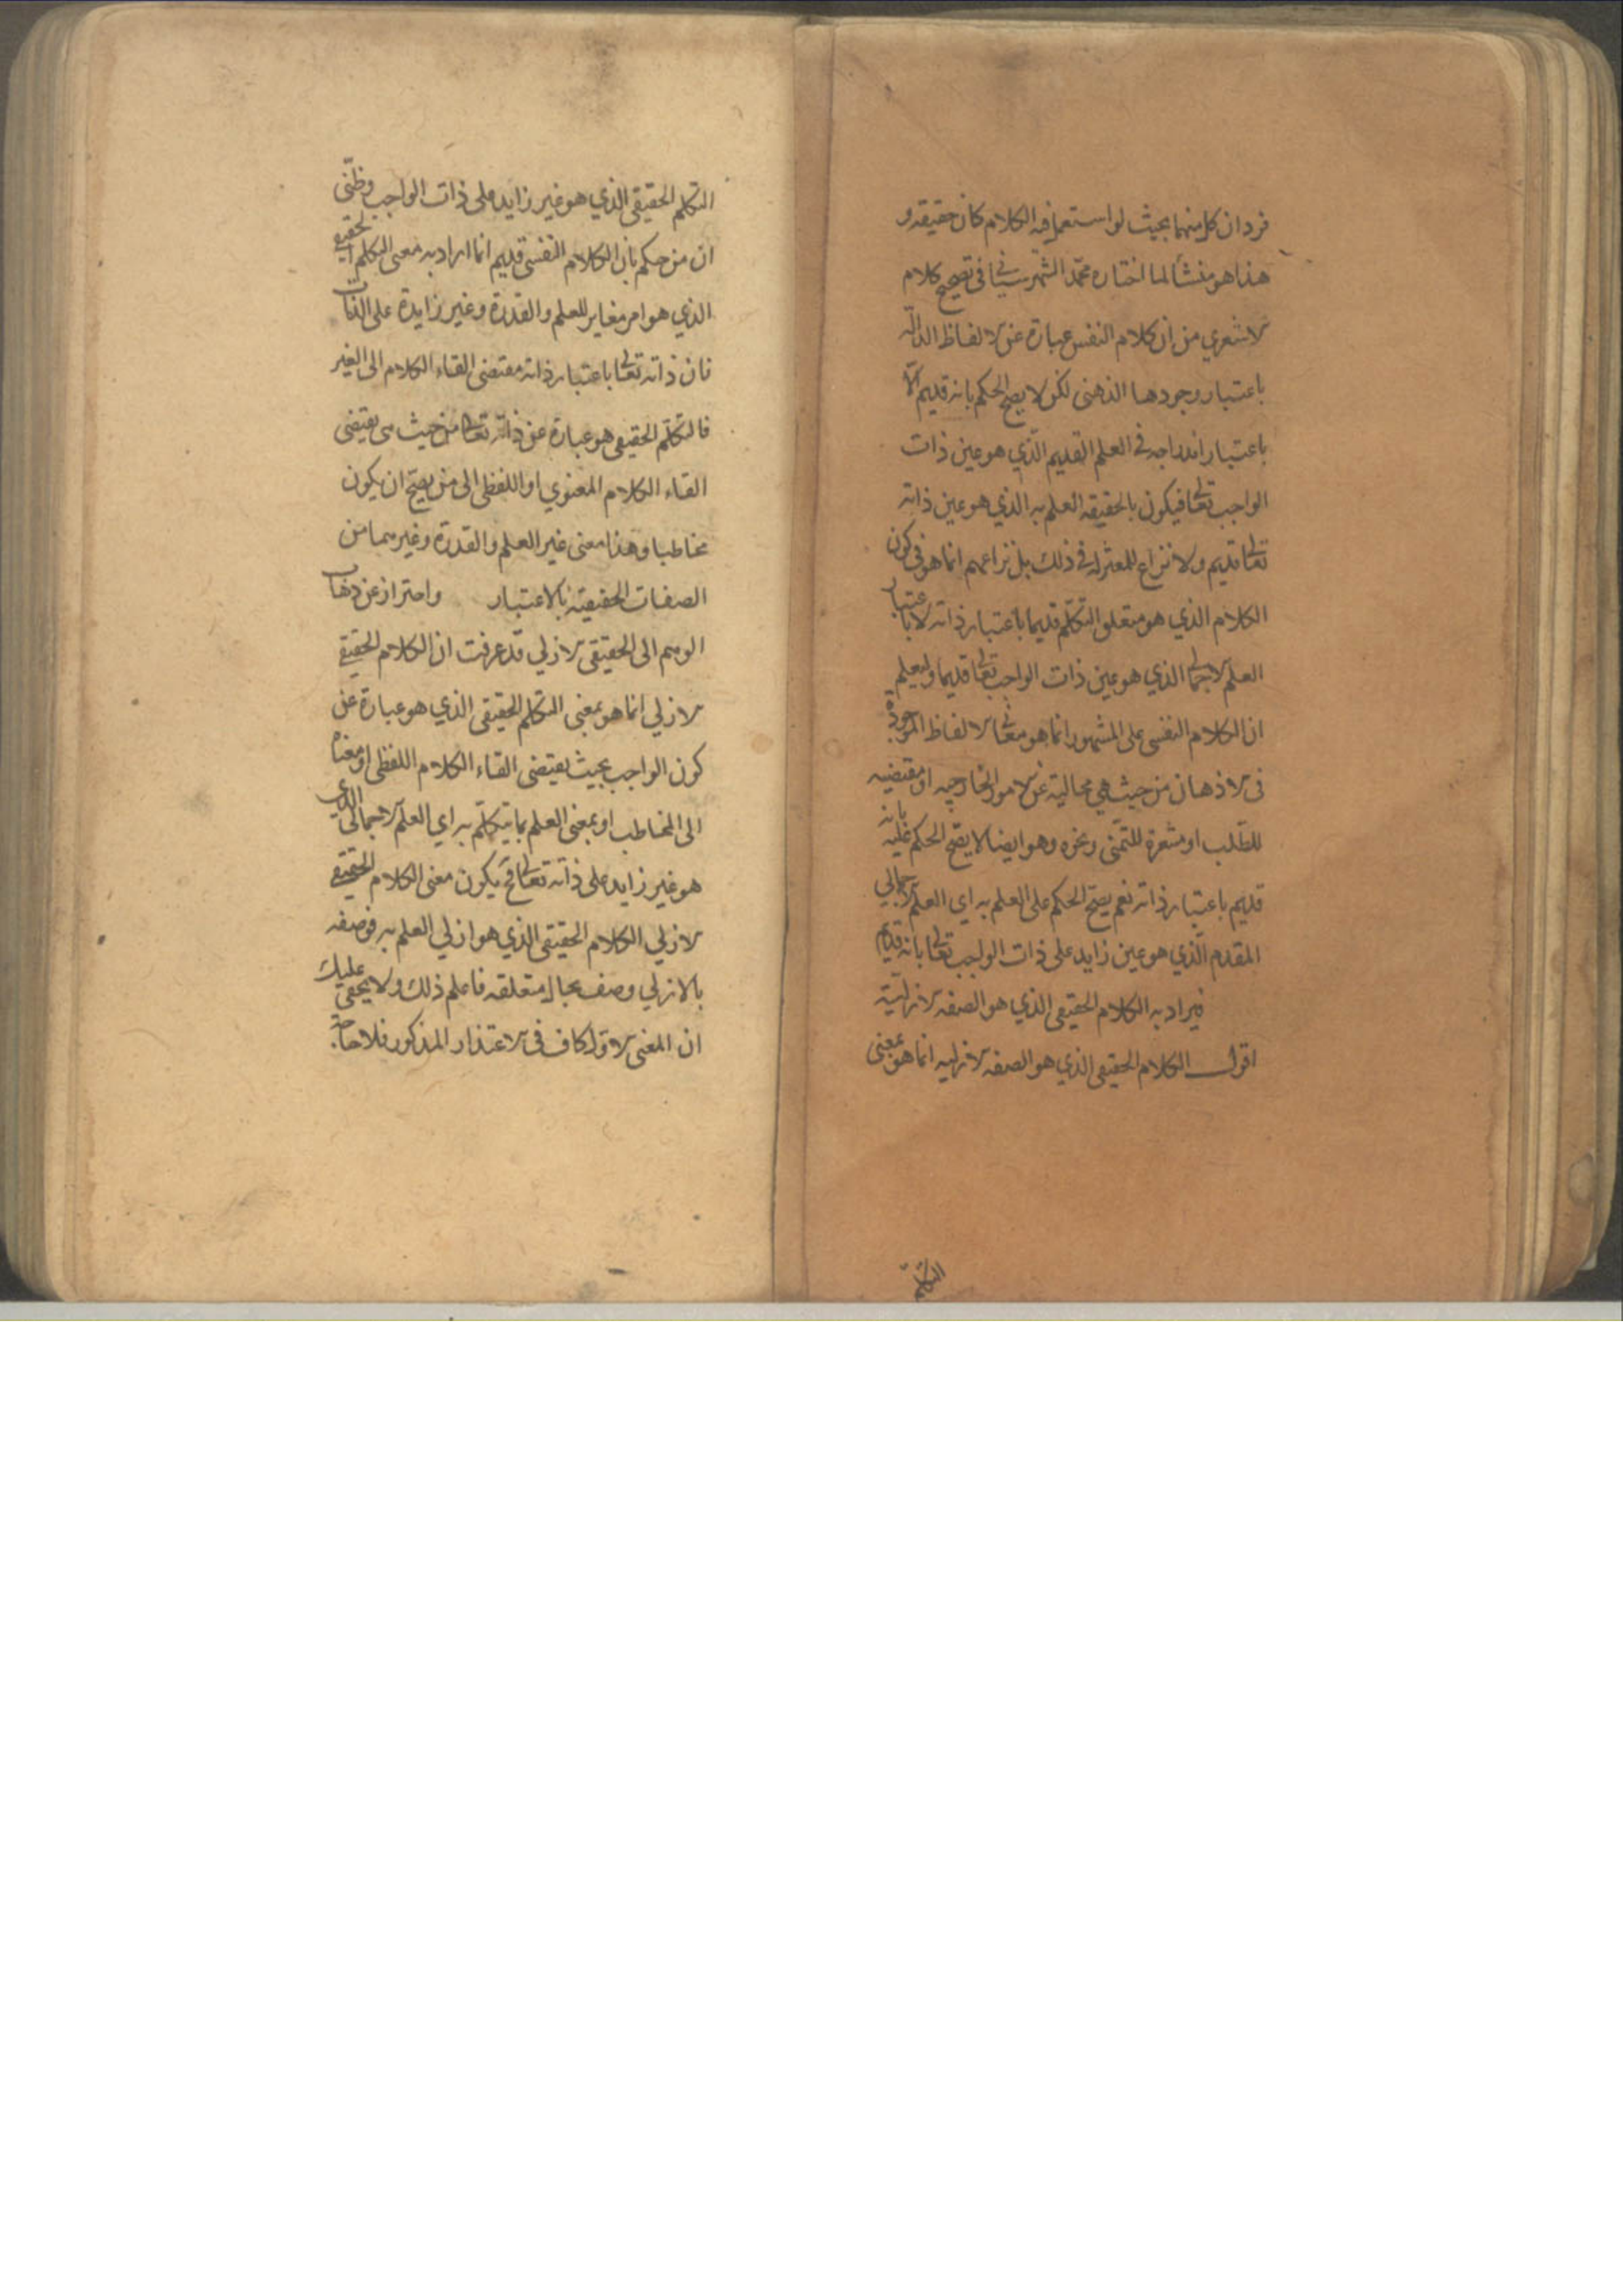 فردان كل منهما بحيث لو استعمل فيه الكلام كان حقيقة و
هذا هو منشأ لما اختاره محمد الشهرستاني في تصحيح كلام
الاشعري من ان كلام النفس عبارة عن الالفاظ الدالة
باعتبار وجودها الذهني لكن لا يصح الحكم بانه قديم الا
باعتبار اندراجه في العلم القديم الذي هو عين ذات
الواجب تعالى فيكون بالحقيقة العلم به الذي هو عين ذاته
تعالى قديم ولا نزاع للمعتزلة في ذلك بل نزاعهم انما هو في كون
الكلام الذي هو متعلق التكلم قديما باعتبار ذاته لا باعتبار
العلم الاجمالي الذي هو عين ذات الواجب تعالى قديما وليعلم
ان الكلام النفسي على المشهور انما هو معاني الالفاظ الموجودة
في الاذهان من حيث هي محاكية عن الامور الخارجيه او مقتضيه
للطلب او مشعرة للتمني ونحوه وهو ايضا لا يصح الحكم عليه بانه
قديم باعتبار ذاته نعم يصح الحكم على العلم به اي العلم الاجمالي
المقدم الذي هو عين زايد على ذات الواجب تعالى بانه قديم
فيراد به الكلام الحقيقي الذي هو الصفه الازليه
اقول الكلام الحقيقي الذي هو الصفه الازليه انما هو بمعنى
التكلم
التكلم الحقيقي الذي هو غير زايد على ذات الواجب وظني
ان من حكم بان الكلام النفسي قديم انما اراد به معنى التكلم الحقيقي
الذي هو امر مغاير للعلم والقدرة وغير زايدة على الذات
فان ذاته تعالى باعتبار ذاته مقتضى القاء الكلام الى الغير
فالتكلم الحقيقي هو عبارة عن ذاته تعالى من حيث هي يقتضي
القاء الكلام المعنوي او اللفظي الى من يصح ان يكون
مخاطبا وهذا معنى غير العلم والقدرة وغيرهما من
الصفات الحقيقية بالاعتبار واحتراز عن ذهاب
الوهم الى الحقيقي الازلي قد عرفت ان الكلام الحقيقي
الازلي انما هو بمعنى التكلم الحقيقي الذي هو عبارة عن
كون الواجب بحيث يقتضي القاء الكلام اللفظي او معناه
الى المخاطب او بمعنى العلم بما يتكلم به اي العلم الاجمالي الذي
هو غير زايد على ذاته تعالى فح يكون معنى الكلام الحقيقي
الازلي الكلام الحقيقي الذي هو ازلي العلم به فوصفه
بالازلي وصف بحال متعلقه فاعلم ذلك ولا يخفى عليك
ان المعنى الاول كاف في الاعتذار المذكور فلا حاجة